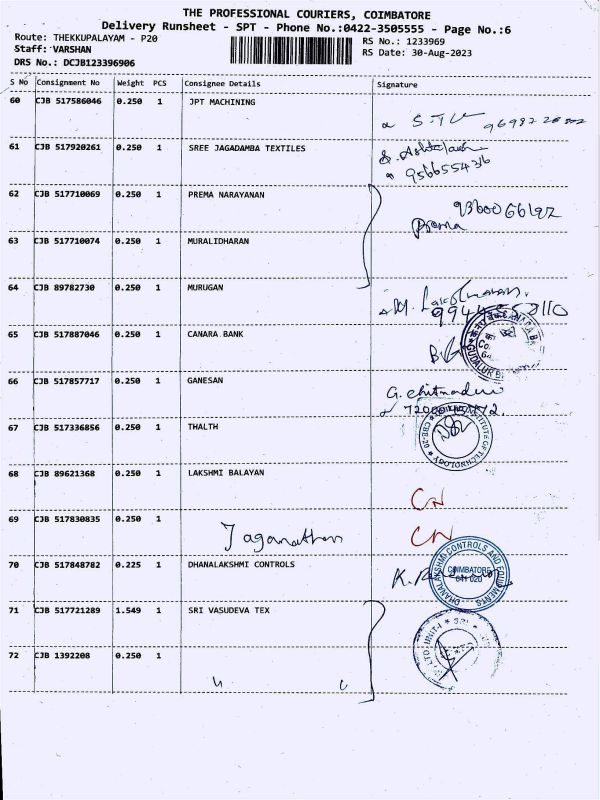 THE PROFESSIONAL COURIERS, COIMBATORE
Delivery Runsheet - SPT - Phone No.:0422-3505555 - Page No.:6
Route: THEKKUPALAYAM - P20
RS No.: 1233969
Staff: VARSHAN
RS Date: 30-Aug-2023
DRS No.: DCJB123396906
S No Consignment No Weight PCS Consignee Details Signature
60 CJB 517586046 0.250 1 JPT MACHINING
61 CJB 517920261 0.250 1 SREE JAGADAMBA TEXTILES
9566554316
62 CJB 517710069 0.250 1 PREMA NARAYANAN
Prema
63 CJB 517710074 0.250 1 MURALIDHARAN
64 CJB 89782730 0.250 1 MURUGAN
65 CJB 517887046 0.250 1 CANARA BANK
66 CJB 517857717 0.250 1 GANESAN
67 CJB 517336856 0.250 1 THALTH
INSTITUTE OF TECHNOLOGY
68 CJB 89621368 0.250 1 LAKSHMI BALAYAN
CN
69 CJB 517830835 0.250 1
Jaganathan
CN
70 CJB 517848782 0.225 1 DHANALAKSHMI CONTROLS
DHANALAKSHMI CONTROLS AND EQUIPMENTS
COIMBATORE
641 020
71 CJB 517721289 1.549 1 SRI VASUDEVA TEX
72 CJB 1392208 0.250 1